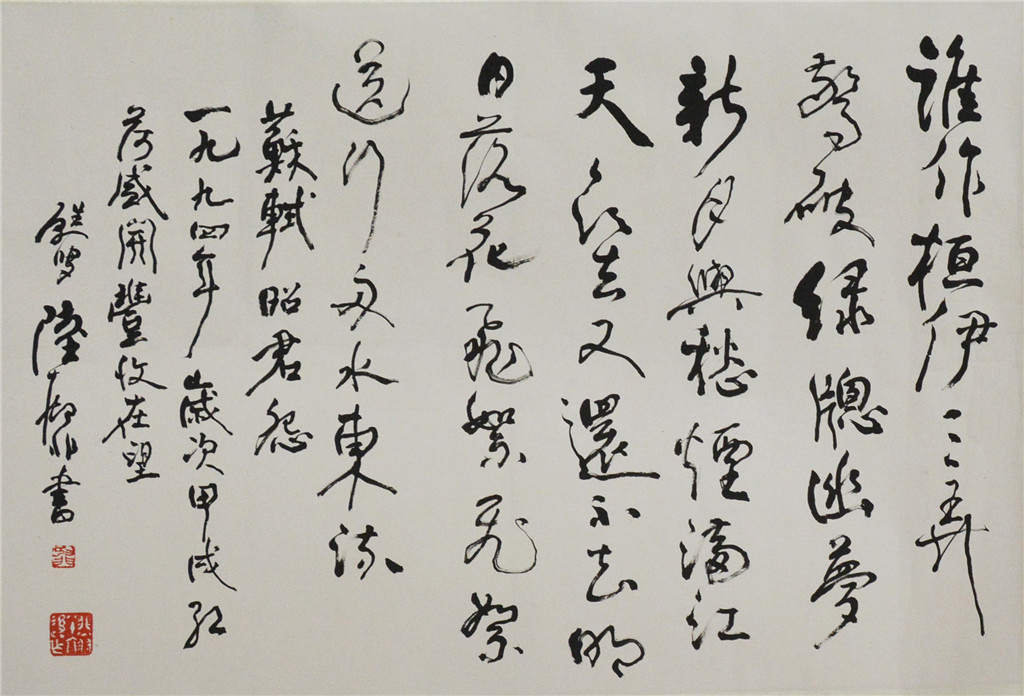 誰作桓伊三弄
驚破緑牕幽夢
新月與愁煙滿江
天欲去又還不去明
日落花飛絮飛絮
送行舟水東流
蘇軾昭君怨
一九九四年歲次甲戌紅
荷盛開豐收在望
甦叟陸抑非書